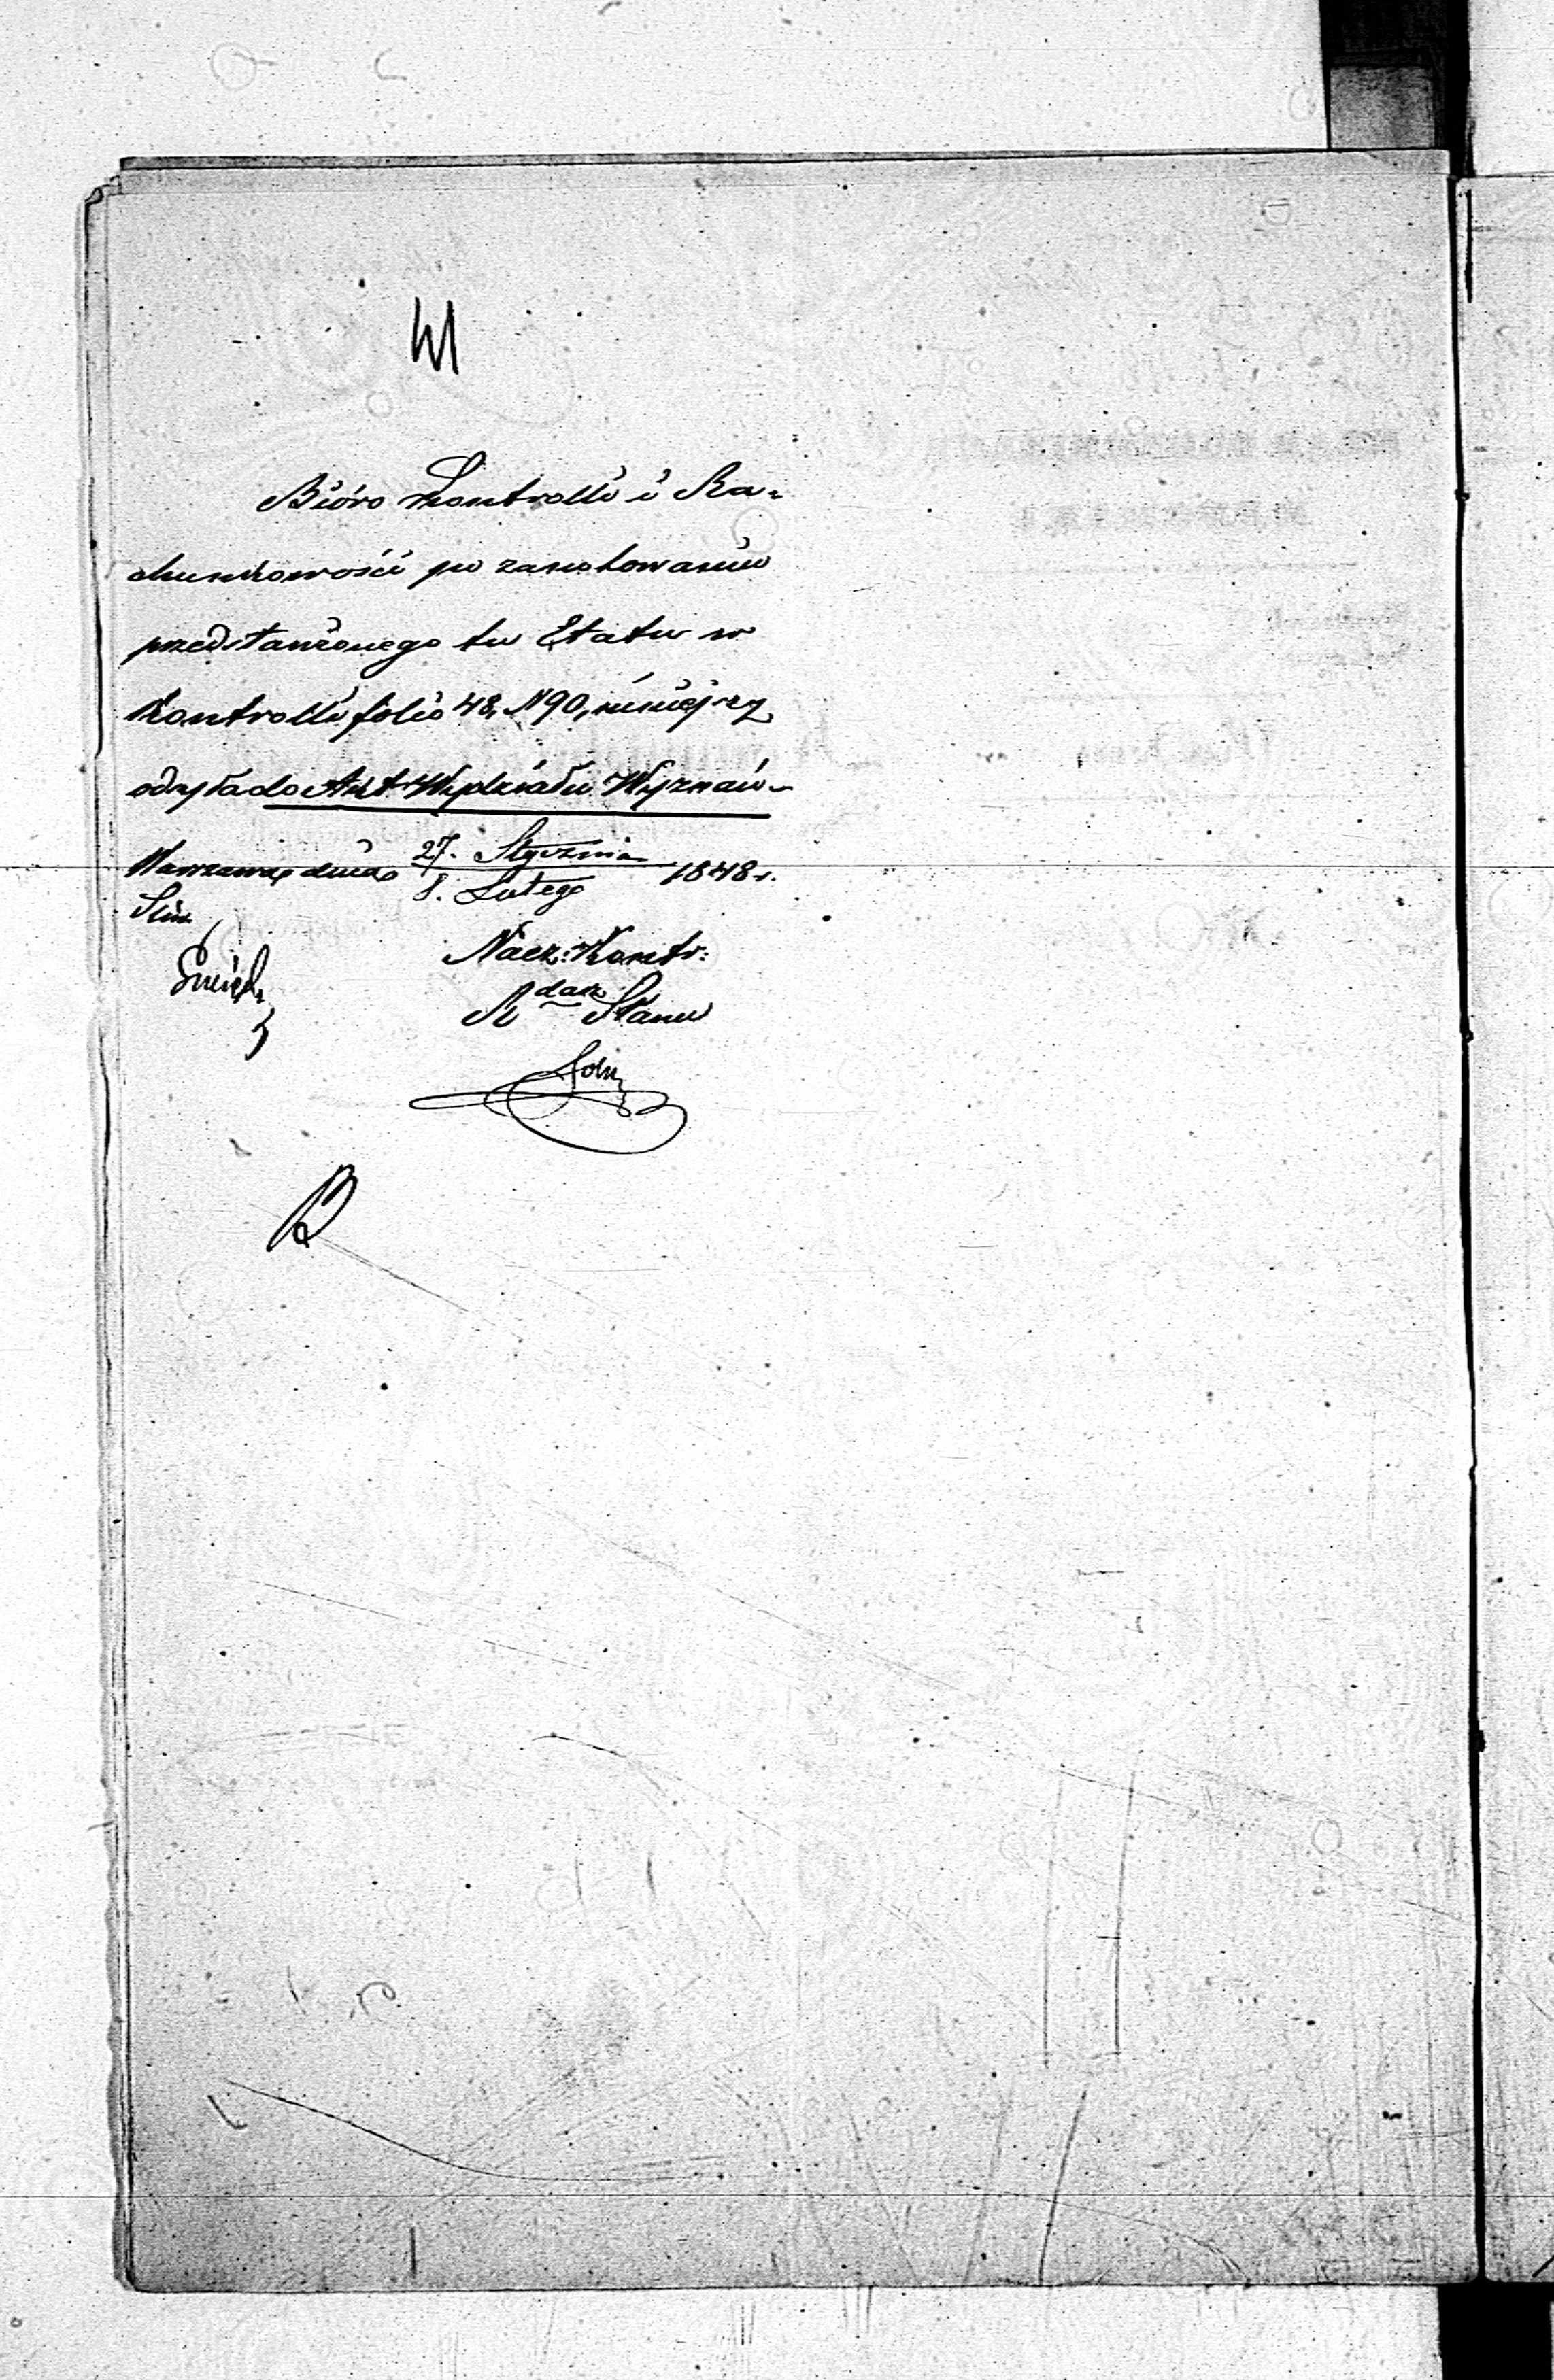 Bióro Kontrolli i Ra-
chunkowości po zanotowaniu
przedstawionego tu Etatu w
Kontrolli folio 48, N 90, niniejszy
odsyła do Akt Wydziału Wyznań
Warszawa dnia 27. Stycznia
8. Lutego 1848 r.
Nacz: Kontr:
R dca Stanu